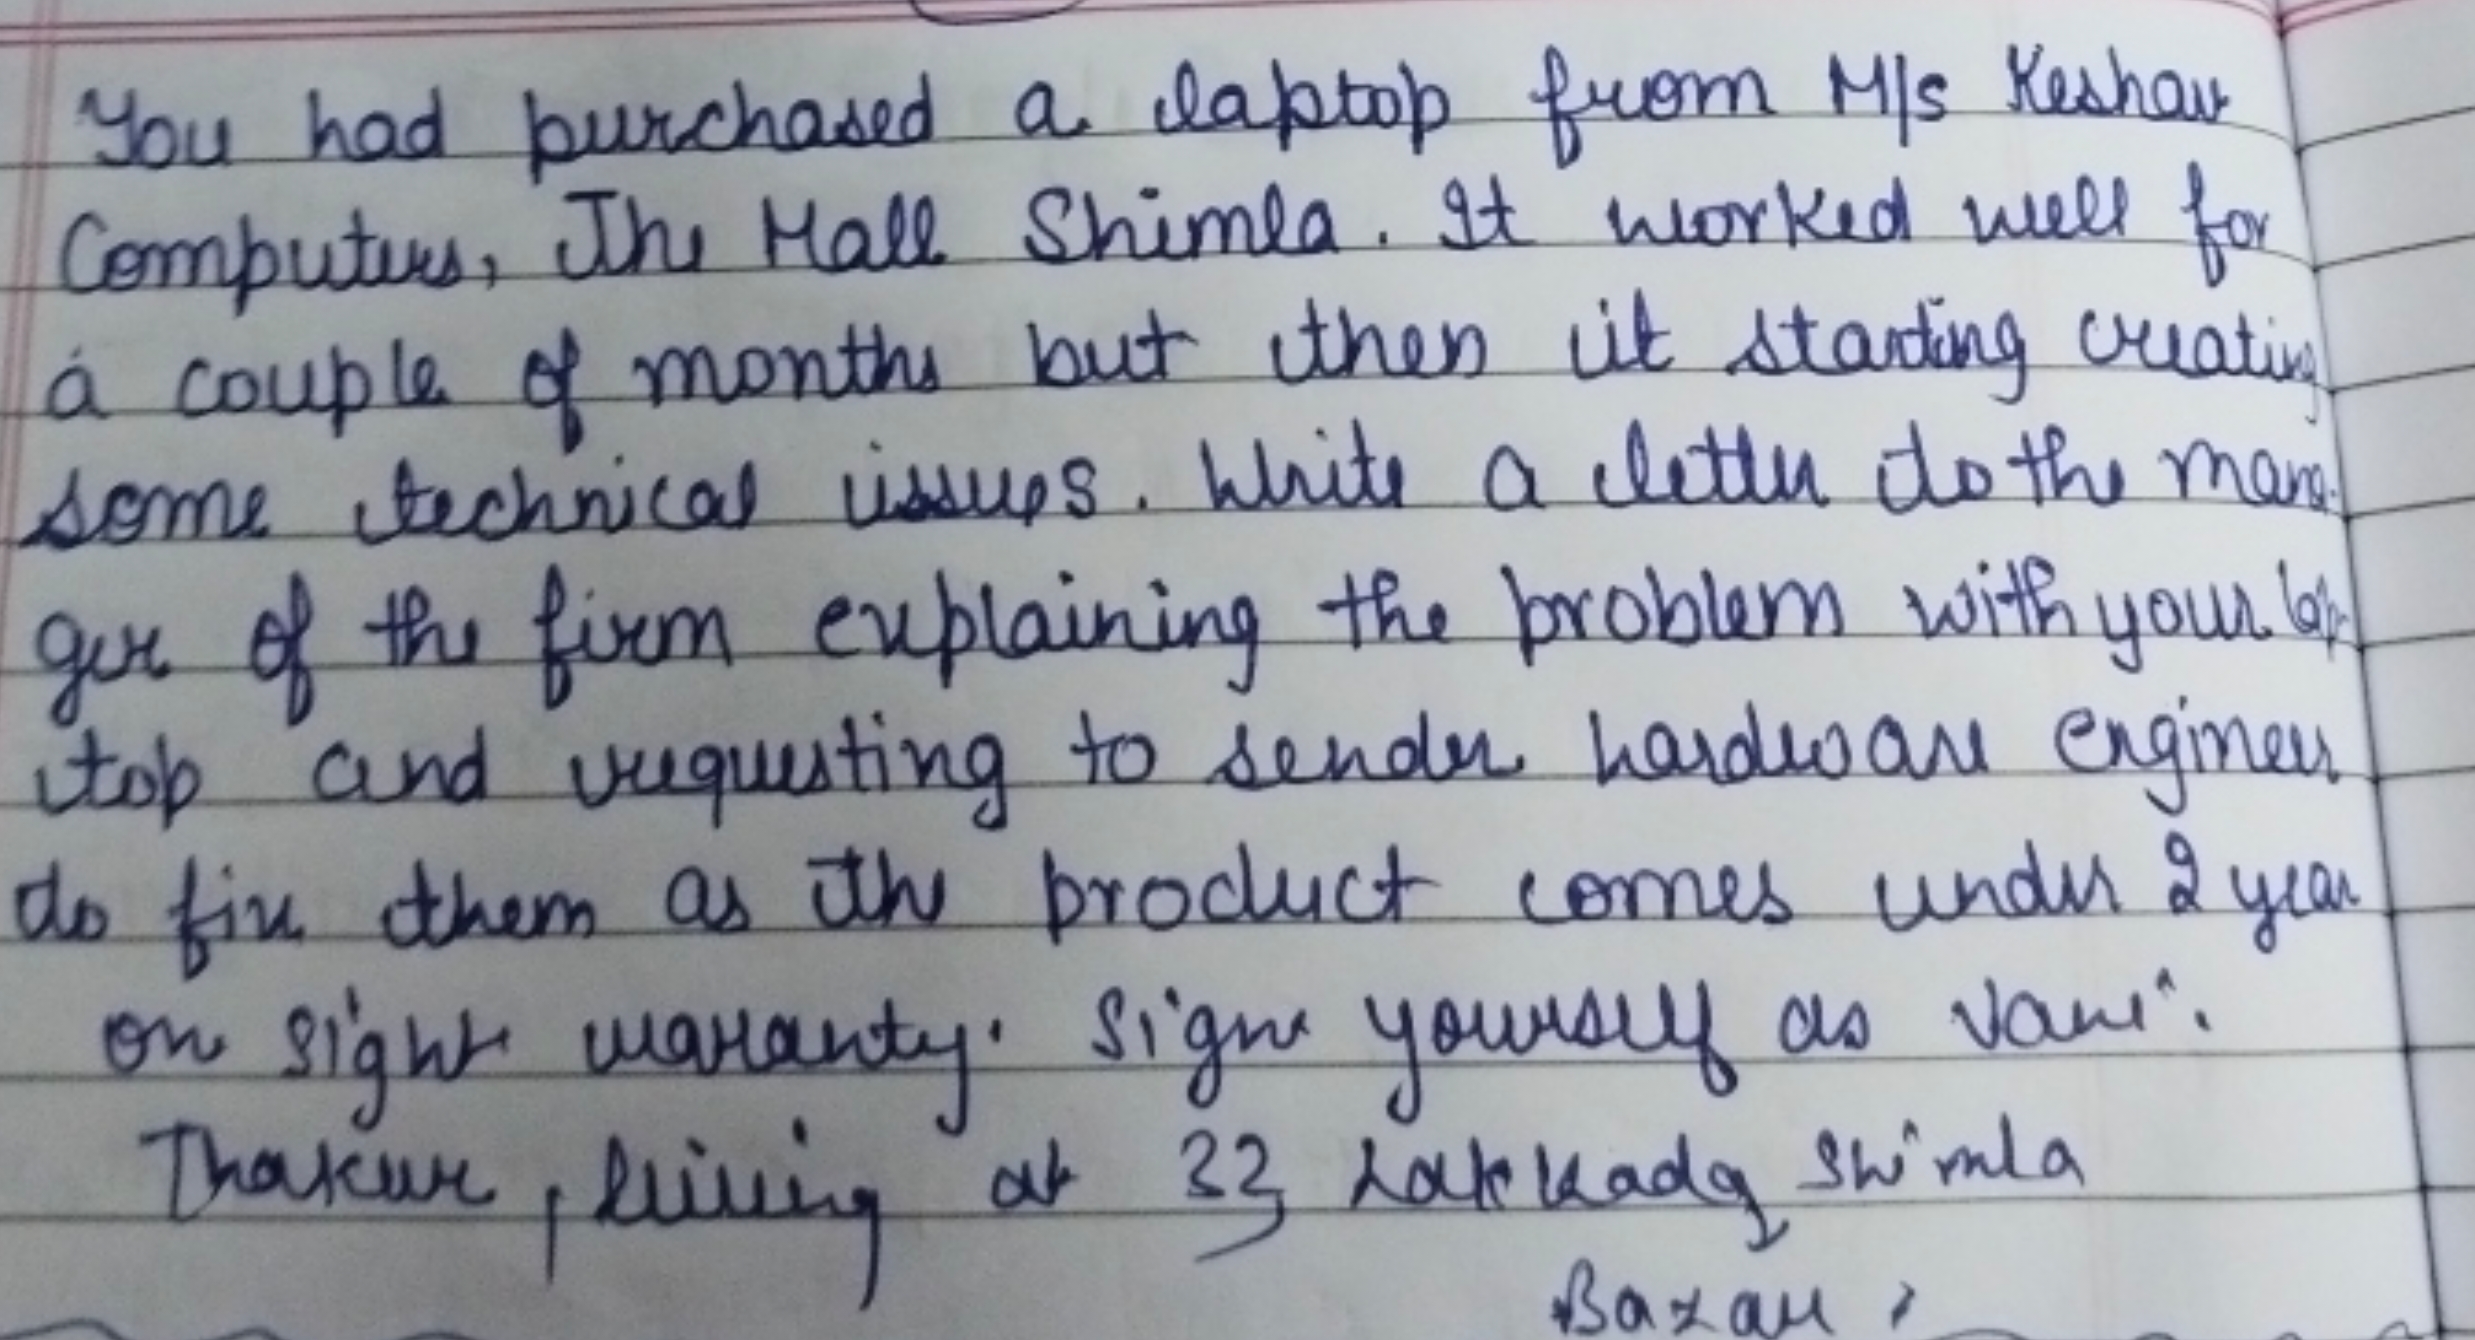 You had purchased a laptop from M/s Keshav
Computers, The Mall Shimla. It worked well for
a couple of months but then it starting creating
some technical issues. Write a letter to the mana-
ger of the firm explaining the problem with your lap-
top and requesting to sender hardware engineer
to fix them as the product comes under 2 year
on sight warranty. Sign yourself as Vani
Thakur, living at 33, Lakkada Shimla
Bazar,